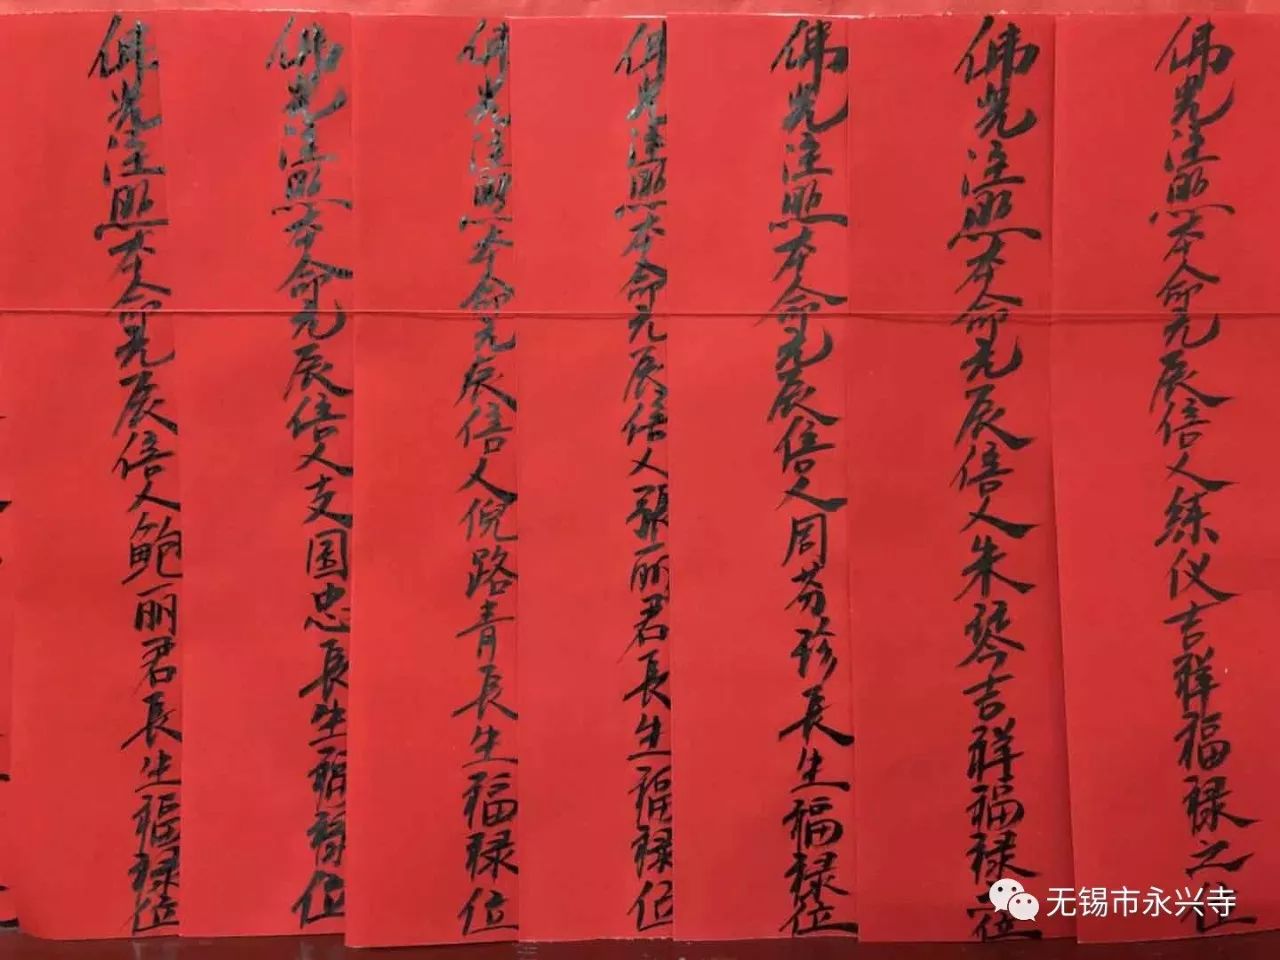 佛光注照本命元辰信人练仪吉祥福禄之位
佛光注照本命元辰信人朱琴吉祥福禄之位
佛光注照本命元辰信人周芬珍长生福禄位
佛光注照本命元辰信人張丽君長生福禄位
佛光注照本命元辰信人倪路青长生福禄位
佛光注照本命元辰信人支国忠長生福禄位
佛光注照本命元辰信人鲍丽君長生福禄位
无锡市永兴寺